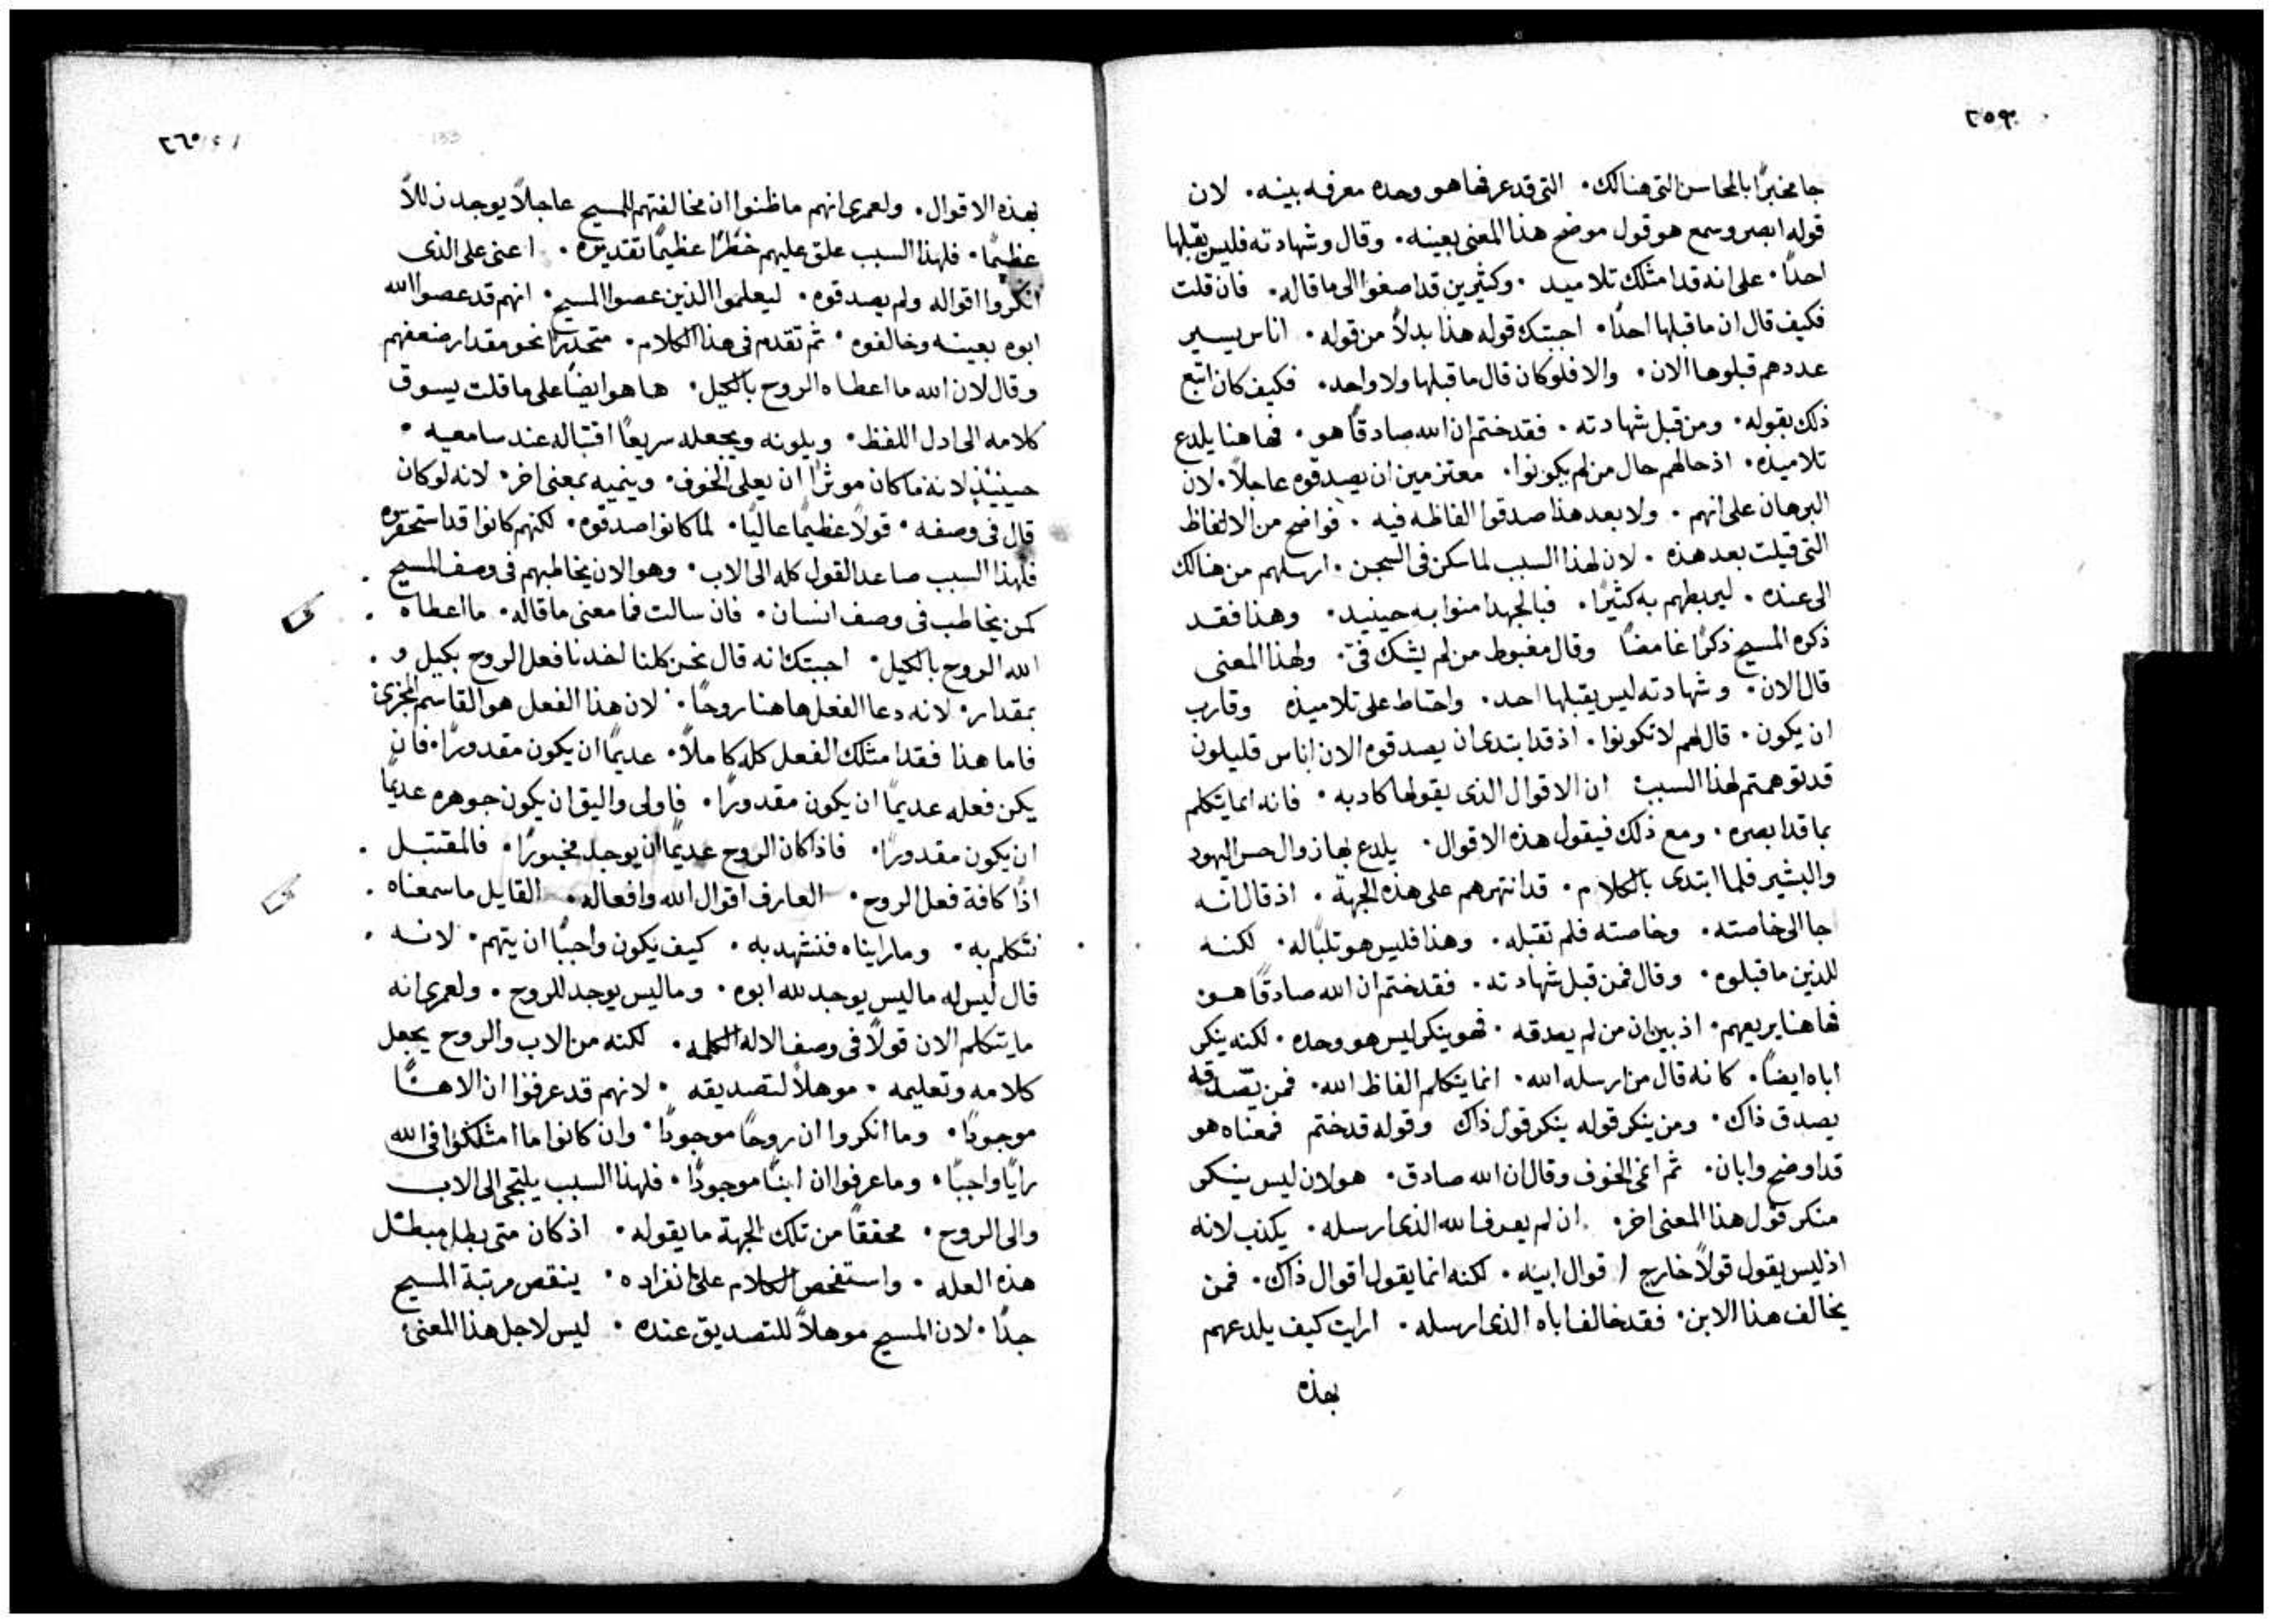 ٢٥٩
جا مخبرًا بالمحاسن التى هنالك. التى قد عرفها هو وحده معرفه بينه. لان
قوله ابصر وسمع هو قول موضح هذا المعنى بعينه. وقال وشهادته فليس يقبلها
احدًا. على انه قد امتلك تلاميد. وكثيرين قد اصغوا الى ما قاله. فان قلت
فكيف قال ان ما قبلها احدًا. اجبتك قوله هذا بدلاً من قوله. اناس يسير
عددهم قبلوها الان. والا فلو كان قال ما قبلها ولا واحد. فكيف كان اتبع
ذلك بقوله. ومن قبل شهادته. فقد ختم ان الله صادقًا هو. فهاهنا يلدع
تلاميذه. اذ حالهم حال من لم يكونوا. معتزمين ان يصدقوه عاجلاً. لان
البرهان على انهم. ولا بعد هذا صدقوا الفاظه فيه. فواضح من الالفاظ
التى قيلت بعد هذه. لان لهذا السبب لما سكن فى السجن. ارسلهم من هنالك
الى عنده. ليربطهم به كثيرًا. فبالجهد امنوا به حينيد. وهذا فقد
ذكره المسيح ذكرًا غامضًا وقال مغبوط من لم يشك فىّ. ولهذا المعنى
قال الان. وشهادته ليس يقبلها احد. واحتاط على تلاميذه وقارب
ان يكون. قال لهم لا تكونوا. اذ قد ابتدى ان يصدقوه الان اناس قليلون
قد توهمتم لهذا السبب ان الاقوال الذى يقولها كادبه. فانه انما يتكلم
بما قد ابصره. ومع ذلك فيقول هذه الاقوال. يلدع بها زوال حس اليهود
والبشير فلما ابتدى بالكلام. قد انتهرهم على هذه الجهة. اذ قال انه
جا الى خاصته. وخاصته فلم تقبله. وهذا فليس هو تلبًا له. لكنه
للذين ما قبلوه. وقال فمن قبل شهادته. فقد ختم ان الله صادقًا هو.
فهاهنا يريعهم. اذ بين ان من لم يصدقه. فهو ينكر ليس هو وحده. لكنه ينكر
اباه ايضًا. كانه قال من ارسله الله. انما يتكلم الفاظ الله. فمن يصّدقه
يصدق ذاك. ومن ينكر قوله ينكر قول ذاك وقوله قد ختم فمعناه هو
قد اوضح وابان. ثم انمى الخوف وقال ان الله صادق. هو لان ليس ينكر
منكر قول هذا المعنى اخر. ان لم يعرف الله الذى ارسله. يكذب لانه
اذ ليس يقول قولاً خارج اقوال ابيه. لكنه انما يقول اقوال ذاك. فمن
يخالف هذا الابن. فقد خالف اباه الذى ارسله. ارايت كيف يلدعهم
بهذه
٢٦٠
بهذه الاقوال. ولعمرى انهم ما ظنوا ان مخالفتهم للمسيح عاجلاً يوجد زللاً
عظيمًا. فلهذا السبب علق عليهم خطرًا عظيمًا تقديره. اعنى على الذى
انكروا اقواله ولم يصدقوه. ليعلموا الذين عصوا المسيح. انهم قد عصوا الله
ابوه بعينه وخالفوه. ثم تقدم فى هذا الكلام. متحدرًا نحو مقدار ضعفهم
وقال لان الله ما اعطاه الروح بالكيل. ها هو ايضًا على ما قلت يسوق
كلامه الى ادل اللفظ. ويلونه ويجعله سريعًا اقتباله عند سامعيه.
حينيذٍ لانه ما كان موثرًا ان يعلى الخوف. وينميه بمعنى اخر. لانه لو كان
قال فى وصفه. قولاً عظيمًا عاليًا. لما كانوا صدقوه. لكنهم كانوا قد استحقروه
فلهذا السبب صاعد القول كله الى الاب. وهو الان يخاطبهم فى وصف المسيح.
كمن يخاطب فى وصف انسان. فان سالت فما معنى ما قاله. ما اعطاه
الله الروح بالكيل. اجبتك انه قال نحن كلنا اخدنا فعل الروح بكيل و.
بمقدار. لانه دعا الفعل هاهنا روحًا. لان هذا الفعل هو القاسم المجزى
فاما هذا فقد امتلك الفعل كله كاملاً. عديمًا ان يكون مقدورًا. فان
يكن فعله عديمًا ان يكون مقدورًا. فاولى واليق ان يكون جوهره عديمًا
ان يكون مقدورًا. فاذا كان الروح عديمًا ان يوجد مخبورًا. فالمقتبل.
اذًا كافة فعل الروح. العارف اقوال الله وافعاله. القايل ما سمعناه.
نتكلم به. وما رايناه فنشهد به. كيف يكون واجبًا ان يتهم. لانه.
قال ليس له ما ليس يوجد لله ابوه. وما ليس يوجد للروح. ولعمرى انه
ما يتكلم الان قولاً فى وصف الاله الكلمه. لكنه من الاب والروح يجعل
كلامه وتعليمه. موهلاً لتصديقه. لانهم قد عرفوا ان الاهًا
موجودًا. وما انكروا ان روحًا موجودًا. وان كانوا ما امتلكوا فى الله
رايًا واجبًا. وما عرفوا ان ابنًا موجودًا. فلهذا السبب يلتجى الى الاب
والى الروح. محققًا من تلك الجهة ما يقوله. اذ كان متى بطل مبطل
هذه العله. واستفحص الكلام على انفراده. ينقص مرتبة المسيح
جدًا. لان المسيح موهلاً للتصديق عنده. ليس لاجل هذا المعنى